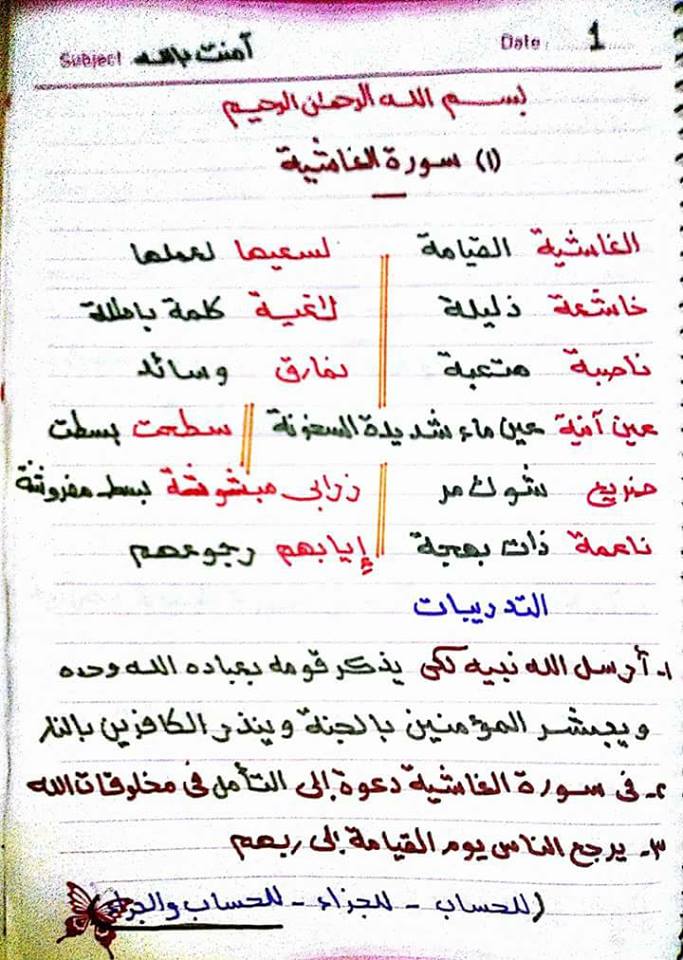 Subject آمنت بالله Date: 1
بسم الله الرحمن الرحيم
(١) سورة الغاشية
الغاشية القيامة لسعيها لعملها
خاشعة ذليلة لاغية كلمة باطلة
ناصبة متعبة نمارق وسائد
عين آنية عين ماء شديدة السخونة سطحت بسطت
ضريع شوك مر زرابى مبثوثة بسط مفروشة
ناعمة ذات بهجة إيابهم رجوعهم
التدريبات
١- أرسل الله نبيه لكى يذكر قومه بعباده الله وحده
ويبشر المؤمنين بالجنة وينذر الكافرين بالنار
٢- فى سورة الغاشية دعوة إلى التأمل فى مخلوقات الله
٣- يرجع الناس يوم القيامة إلى ربهم
(للحساب - للجزاء - للحساب والجزاء)